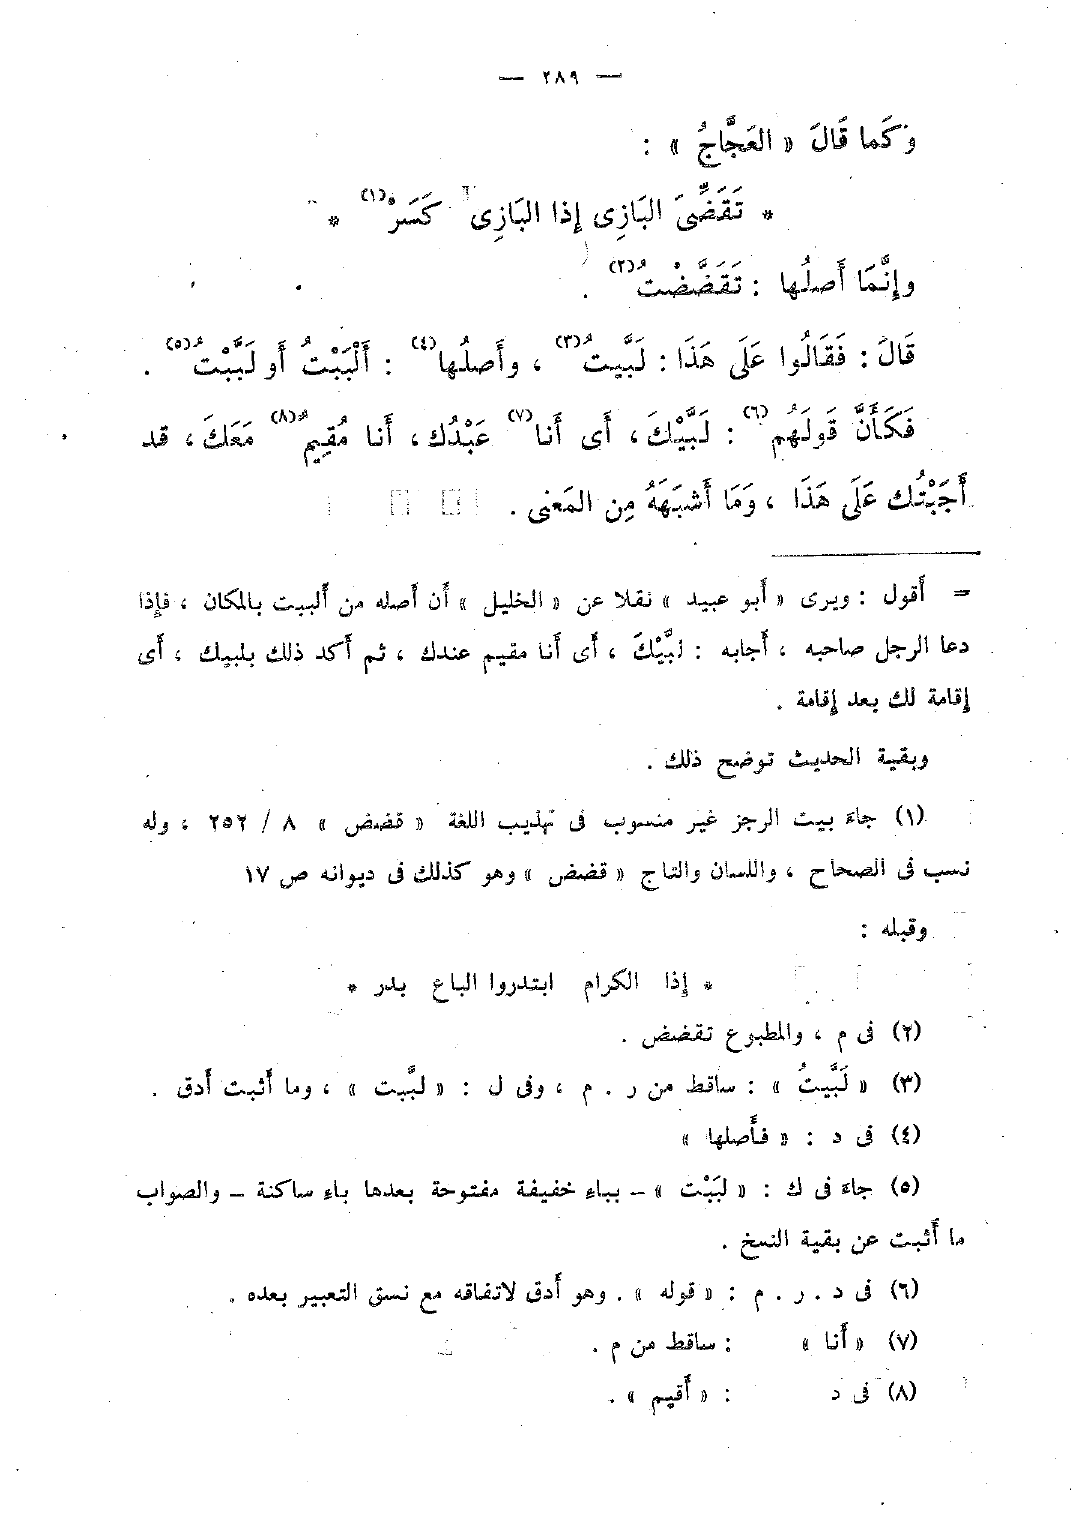 — ٢٨٩ —
وَكَما قَالَ « العَجَّاجُ » :
* تَقَضِّىَ البَازِى إذا البَازِى كَسَرْ(١) *
وإنَّمَا أَصلُها : تَقَضَّضْتُ(٢) .
قَالَ : فَقَالُوا عَلَى هَذَا : لَبَّيتُ(٣) ، وأَصلُها(٤) : أَلْبَبْتُ أَو لَبَّبْتُ(٥) .
فَكَأَنَّ قَولَهُم(٦) : لَبَّيْكَ ، أَى أَنا(٧) عَبْدُك ، أَنا مُقِيمٌ(٨) مَعَكَ ، قد
أَجَبْتُك عَلَى هَذَا ، وَمَا أَشبَهَهُ مِن المَعنى .
= أَقول : ويرى « أَبو عبيد » نقلا عن « الخليل » أَن أَصله من ألببت بالمكان ، فإِذا
دعا الرجل صاحبه ، أَجابه : لبَّيْكَ ، أَى أَنا مقيم عندك ، ثم أَكد ذلك بلبيك ، أَى
إِقامة لك بعد إِقامة .
وبقية الحديث توضح ذلك .
(١) جاءَ بيت الرجز غير منسوب فى تهذيب اللغة « قضض » ٨ / ٢٥٢ ، وله
نسب فى الصحاح ، واللسان والتاج « قضض » وهو كذلك فى ديوانه ص ١٧
وقبله :
* إِذا الكرام ابتدروا الباع بدر *
(٢) فى م ، والمطبوع تقضض .
(٣) « لَبَّيتُ » : ساقط من ر . م ، وفى ل : « لبَّبت » ، وما أَثبت أَدق .
(٤) فى د : « فأَصلها »
(٥) جاءَ فى ك : « لبَبْت » – بباءِ خفيفة مفتوحة بعدها باءِ ساكنة – والصواب
ما أَثبت عن بقية النسخ .
(٦) فى د . ر . م : « قوله » . وهو أَدق لاتفاقه مع نسق التعبير بعده .
(٧) « أَنا » : ساقط من م .
(٨) فى د : « أَقيم » .